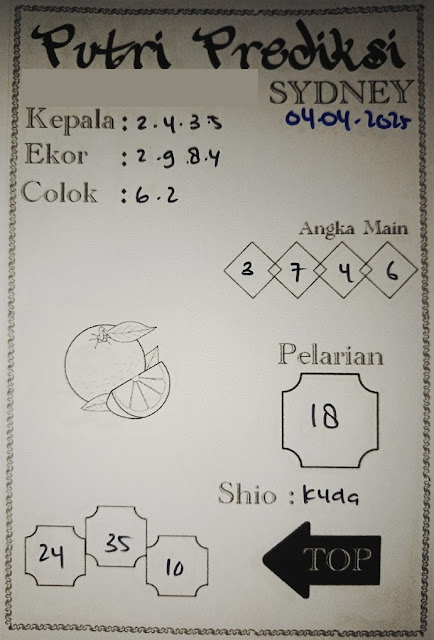 Putri Prediksi
SYDNEY
Kepala : 2.4.3.5
04-04-2025
Ekor : 2.9.8.4
Colok : 6.2
Angka Main
3 7 4 6
Pelarian
18
Shio : kuda
24 35 10
TOP